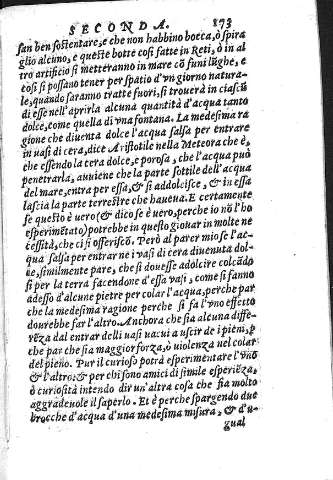 SECONDA. 873
san ben sostentare, e che non habbino bocca, ò spira
glio alcuno, e queste botte così fatte in Reti, ò in al
tro artificio si metteranno in mare cō funi lūghe, e
così si possano tener per spatio d'vn giorno natura-
le, quando saranno tratte fuori, si trouerà in ciascū
di esse nell'aprirla alcuna quantità d'acqua tanto
dolce, come quella di vna fontana. La medesima ra
gione che diuenta dolce l'acqua salsa per entrare
in uasi di cera, dice Aristotile nella Meteora che è,
che essendo la cera dolce, e porosa, che l'acqua può
penetrarla, auuiene che la parte sottile dell'acqua
del mare, entra per essa, & si addolcisce, & in essa
lascia la parte terrestre che haueua. E certamente
se questo è uero (& dico se è uero, perche io nō l'ho
esperimētato) potrebbe in questo giouar in molte ne
cessità, che ci si offeriscō. Però al parer mio se l'ac-
qua salsa per entrar ne i vasi di cera diuenta dol-
ce, similmente pare, che si douesse adolcire colādo
si per la terra facendone d'essa vasi, come si fanno
adesso d'alcune pietre per colar l'acqua, perche par
che la medesima ragione perche si fa l'vno effetto
dourebbe far l'altro. Anchora che sia alcuna diffe-
rēza dal entrar delli uasi uacui a uscir de i pieni, p
che par che sia maggior forza, ò uiolenza nel colar
del pieno. Pur il curioso potrà esperimentare l'vno
& l'altro: & per chi sono amici di simile esperiēza,
ò curiosità intendo dir un'altra cosa che sia molto
aggradeuole il saperlo. Et è perche spargendo due
brocche d'acqua d'una medesima misura, & d'u-
gual